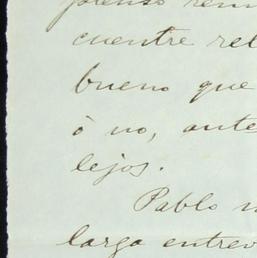 pienso rem
cuentre rel
bueno que
ó no, ante
lejos.
Pablo
larga entrev